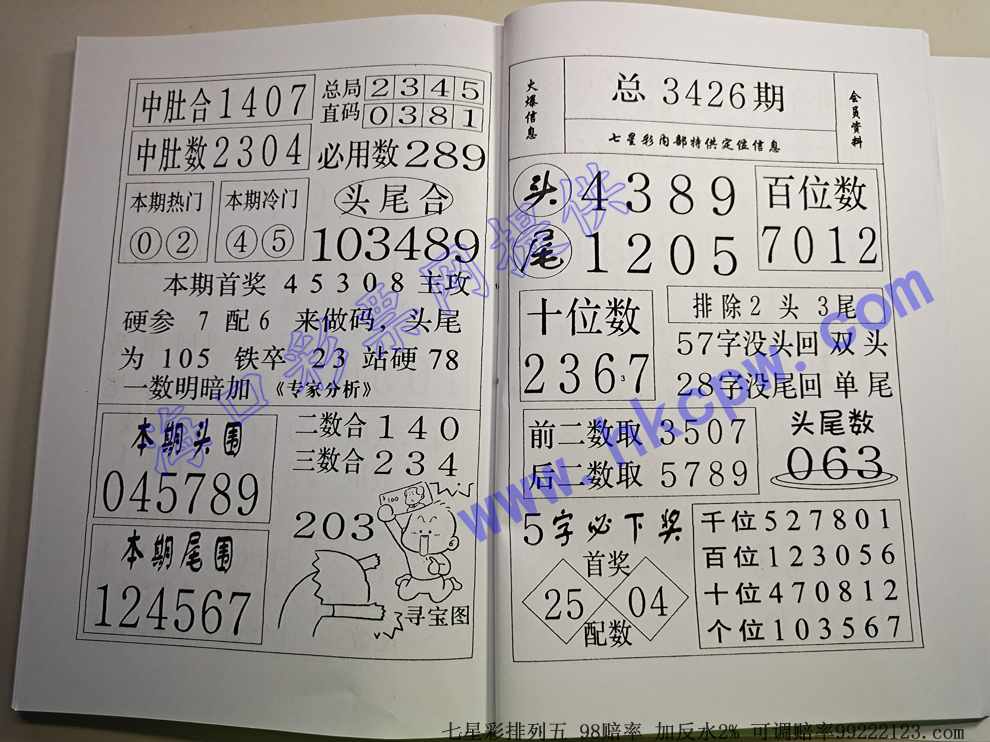 中肚合1407
中肚数2304
总局 2345
直码 0381
必用数289
本期热门
0 2
本期冷门
4 5
头尾合
103489
本期首奖 45308 主攻
硬参 7 配6 来做码，头尾
为 105 铁卒 23 站硬 78
一数明暗加 《专家分析》
本期头围
045789
本期尾围
124567
二数合 140
三数合 234
203
$100
寻宝图
火爆信息
总 3426期
七星彩内部特供定位信息
会员资料
头 4389
尾 1205
百位数
7012
十位数
2367
3
排除2 头 3尾
57字没头回 双 头
28字没尾回 单 尾
前二数取 3507
后二数取 5789
头尾数
063
5字必下奖
首奖
25 04
配数
千位527801
百位123056
十位470812
个位103567
海口彩票网提供
www.hkcpw.com
七星彩排列五 98赔率 加反水2% 可调赔率99222123.com